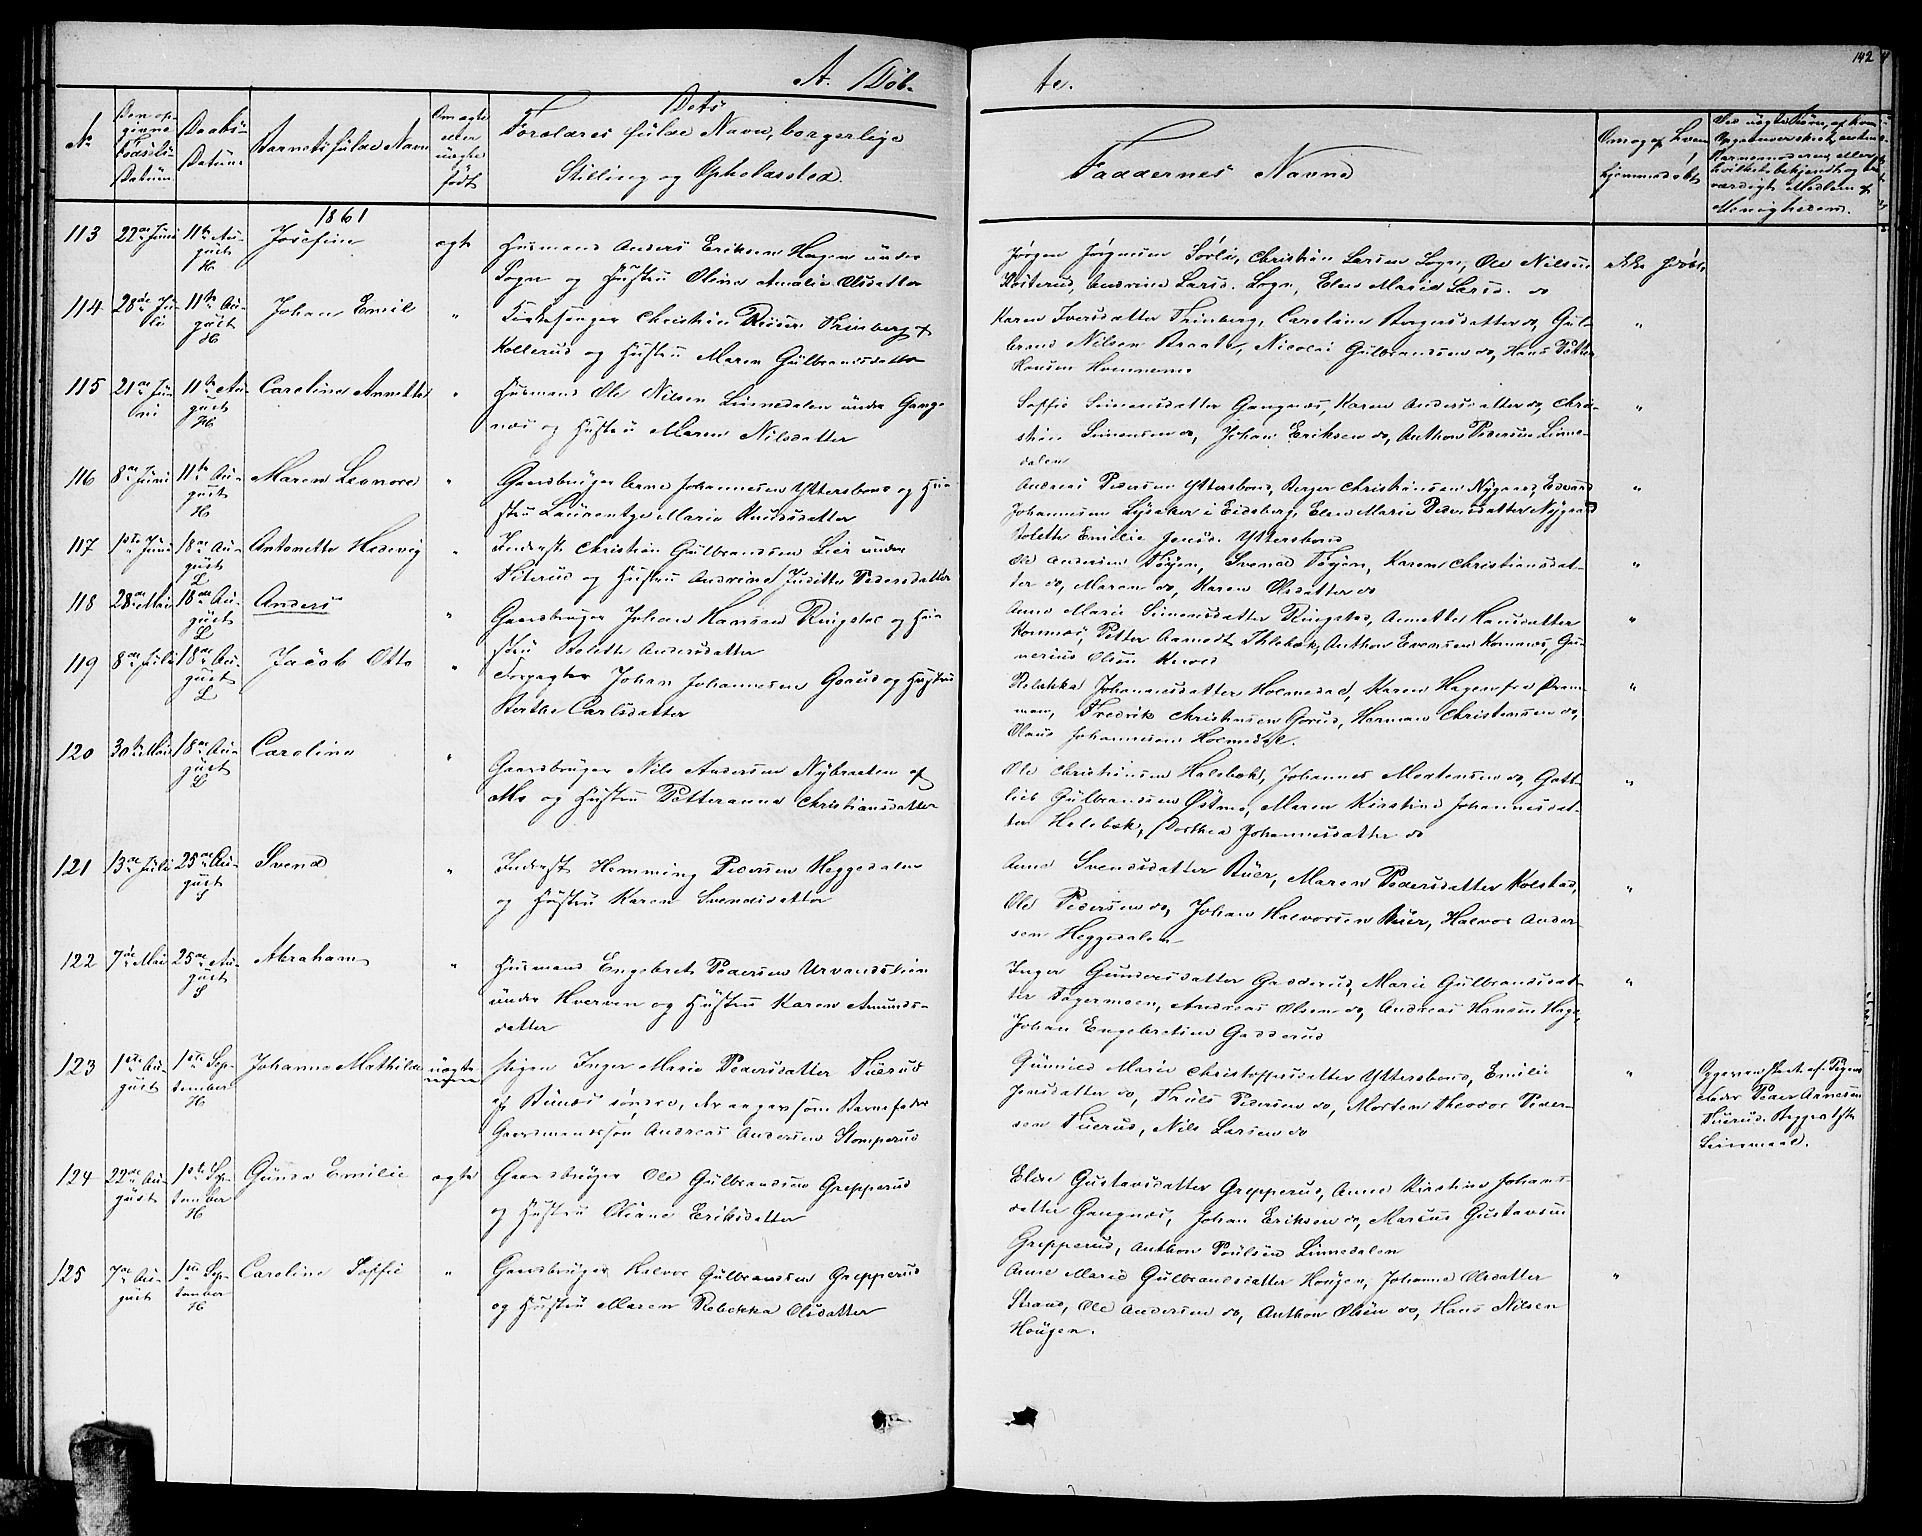 A. Döb-
te.
142
No
Den op-
givne
Fødsels-
Datum
Daabs-
Datum
Barnets fulde Navn
Om ægte
eller
uægte
født
Dets
Forældres fulde Navn, borgerlige
Stilling og Opholdssted.
Faddernes Navne
Om og af hvem
hjemmedøbt
Menigheden.
1861
113 22de Juni 11te Au-
gust
H
Josefine ægte Husmand Anders Eriksen Hagen under
Sogn og Hustru Oline Amalie Olsdatter
Jørgen Jørgensen Sørli, Christian Larsen Sogn, Ole Nilsen
Kösterud, Andrine Larsd. Sogn, Elen Marie Larsd. do
ikke hjdøbt
114 28de Ju-
li
11te Au-
gust
H
Johan Emil " Kirkesanger Christian Risen Trinborg af
Kollerud og Hustru Maren Gulbrandsdatter
Karen Iversdatter Trinborg, Caroline Borgersdatter do, Gul-
brand Nilsen Braate, Nicolai Gulbrandsen do, Hans Petter
Hansen Hvennene
"
115 21de Ju-
ni
11te Au-
gust
H
Caroline Annette " Husmand Ole Nilsen Linnedalen under Gang-
næs og Hustru Maren Nilsdatter
Soffie Simensdatter Gangnæs, Karen Andersdatter do, Chri-
stian Simensen do, Johan Eriksen do, Anthon Pedersen Linne-
dalen
"
116 8de Juni 11te Au-
gust
H
Maren Leonore " Gaardbruger Arne Johannesen Yttersbond og Hu-
stru Laurentze Marie Knudsdatter
Andreas Pedersen Yttersbond, Berger Christiansen Nygaard, Edvard
Johannesen Lysaker i Eidsberg, Elen Marie Pedersdatter Nygaard
Bolette Emilie Jensd. Yttersbond
"
117 1ste Juni 18de Au-
gust
L
Antonette Hedevig " Inderst Christian Gulbrandsen Lier under
Viterud og Hustru Andrine Juditte Pedersdatter
Ole Andersen Tøien, Svend Tøien, Karen Christiansdat-
ter do, Maren do, Karen Olsdatter do
"
118 28de Mai 18de Au-
gust
L
Anders " Gaardbruger Johan Hansen Ringstad og Hu-
stru Bolette Andersdatter
Anne Marie Simensdatter Ringstad, Annette Hansdatter
Kornnæs, Petter Aamodt Thlebæk, Anthon Evensen Kornnæs, Gu-
nerius Olsen
"
119 8de Juli 18de Au-
gust
L
Jacob Otto " Forpagter Johan Johannesen Gorud og Hustru
Berthe Carlsdatter
Rebekka Johannesdatter Holmedal, Karen Hagen fra Dram-
men, Fredrik Christensen Gorud, Herman Christensen do,
Olaus Johannesen Holmedal.
"
120 30te Mai 18de Au-
gust
L
Caroline " Gaardbruger Nils Andersen Nybraaten af
Mo og Hustru Petteranna Christiansdatter
Ole Christiansen Halebæk, Johannes Mortensen do, Gott-
lieb Gulbrandsen Østmo, Maren Kirstine Johannesdat-
ter Halebæk, Dorthea Johannesdatter do
"
121 13de Juli 25de Au-
gust
S
Svend " Inderst Hemming Pedersen Heggedalen
og Hustru Karen Svendsdatter
Anne Svendsdatter Buer, Maren Pedersdatter Kolstad,
Ole Pedersen do, Johan Halvorsen Buer, Halvor Ander-
sen Heggedalen
"
122 7de Mai 25de Au-
gust
S
Abraham " Husmand Engebret Pedersen Urvandslien
under Hverven og Hustru Karen Amunds-
datter
Inger Gundersdatter Gadderud, Marie Gulbrandsdat-
ter Fagermoen, Andreas Olsen do, Andreas Hansen Hage,
Johan Engebretsen Gadderud
"
123 1ste Au-
gust
1ste Sep-
tember
H
Johanne Mathilde uægte
Pigen Inger Marie Pedersdatter Tuerud
af Bunæs søndre, der angav som Barnefader
Gaardmandssøn Andreas Andersen Stomperud
Gunnild Marie Christoffersdatter Yttersbond, Emilie
Jensdatter do, Truls Pedersen do, Morten Theodor Peder-
sen Tuerud, Nils Larsen do
"
Opgaven sted af Pigens
Fader Peder Arnesen
Tuerud. Begges 1ste
Leiermaal.
124 22de Au-
gust
1ste Sep-
tember
H
Gunda Emilie ægte Gaardbruger Ole Gulbrandsen Grepperud
og Hustru Oliane Eriksdatter
Elise Gustavsdatter Grepperud, Anne Kirstine Johans-
datter Gangnæs, Johan Eriksen do, Marius Gustavsen
Grepperud, Anthon Poulsen Linnedalen
125 7de Au-
gust
1ste Sep-
tember
H
Caroline Soffie " Gaardbruger Halvor Gulbrandsen Grepperud
og Hustru Maren Rebekka Olsdatter
Anne Marie Gulbrandsdatter Hougen, Johanne Olsdatter
Strand, Ole Andersen do, Anthon Olsen do, Hans Nilsen
Hougen.
"